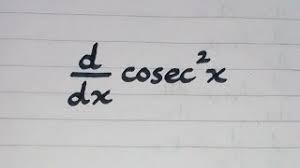 d/dx cosec²x